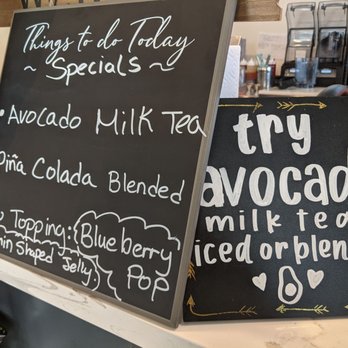 Things to do Today
~ Specials ~
• Avocado Milk Tea
Piña Colada Blended
Topping: Blueberry
Shaped Jelly, Pop
try
avocado
milk tea
iced or blen